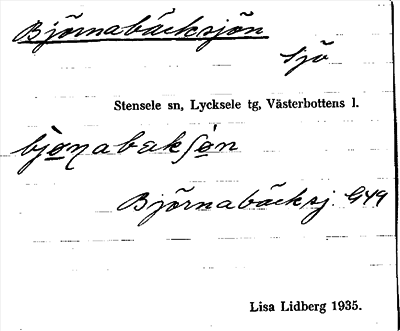 Björnabäcksjön
Sjö
Stensele sn, Lycksele tg, Västerbottens l.
Björnabäcksj. G49
Lisa Lidberg 1935.